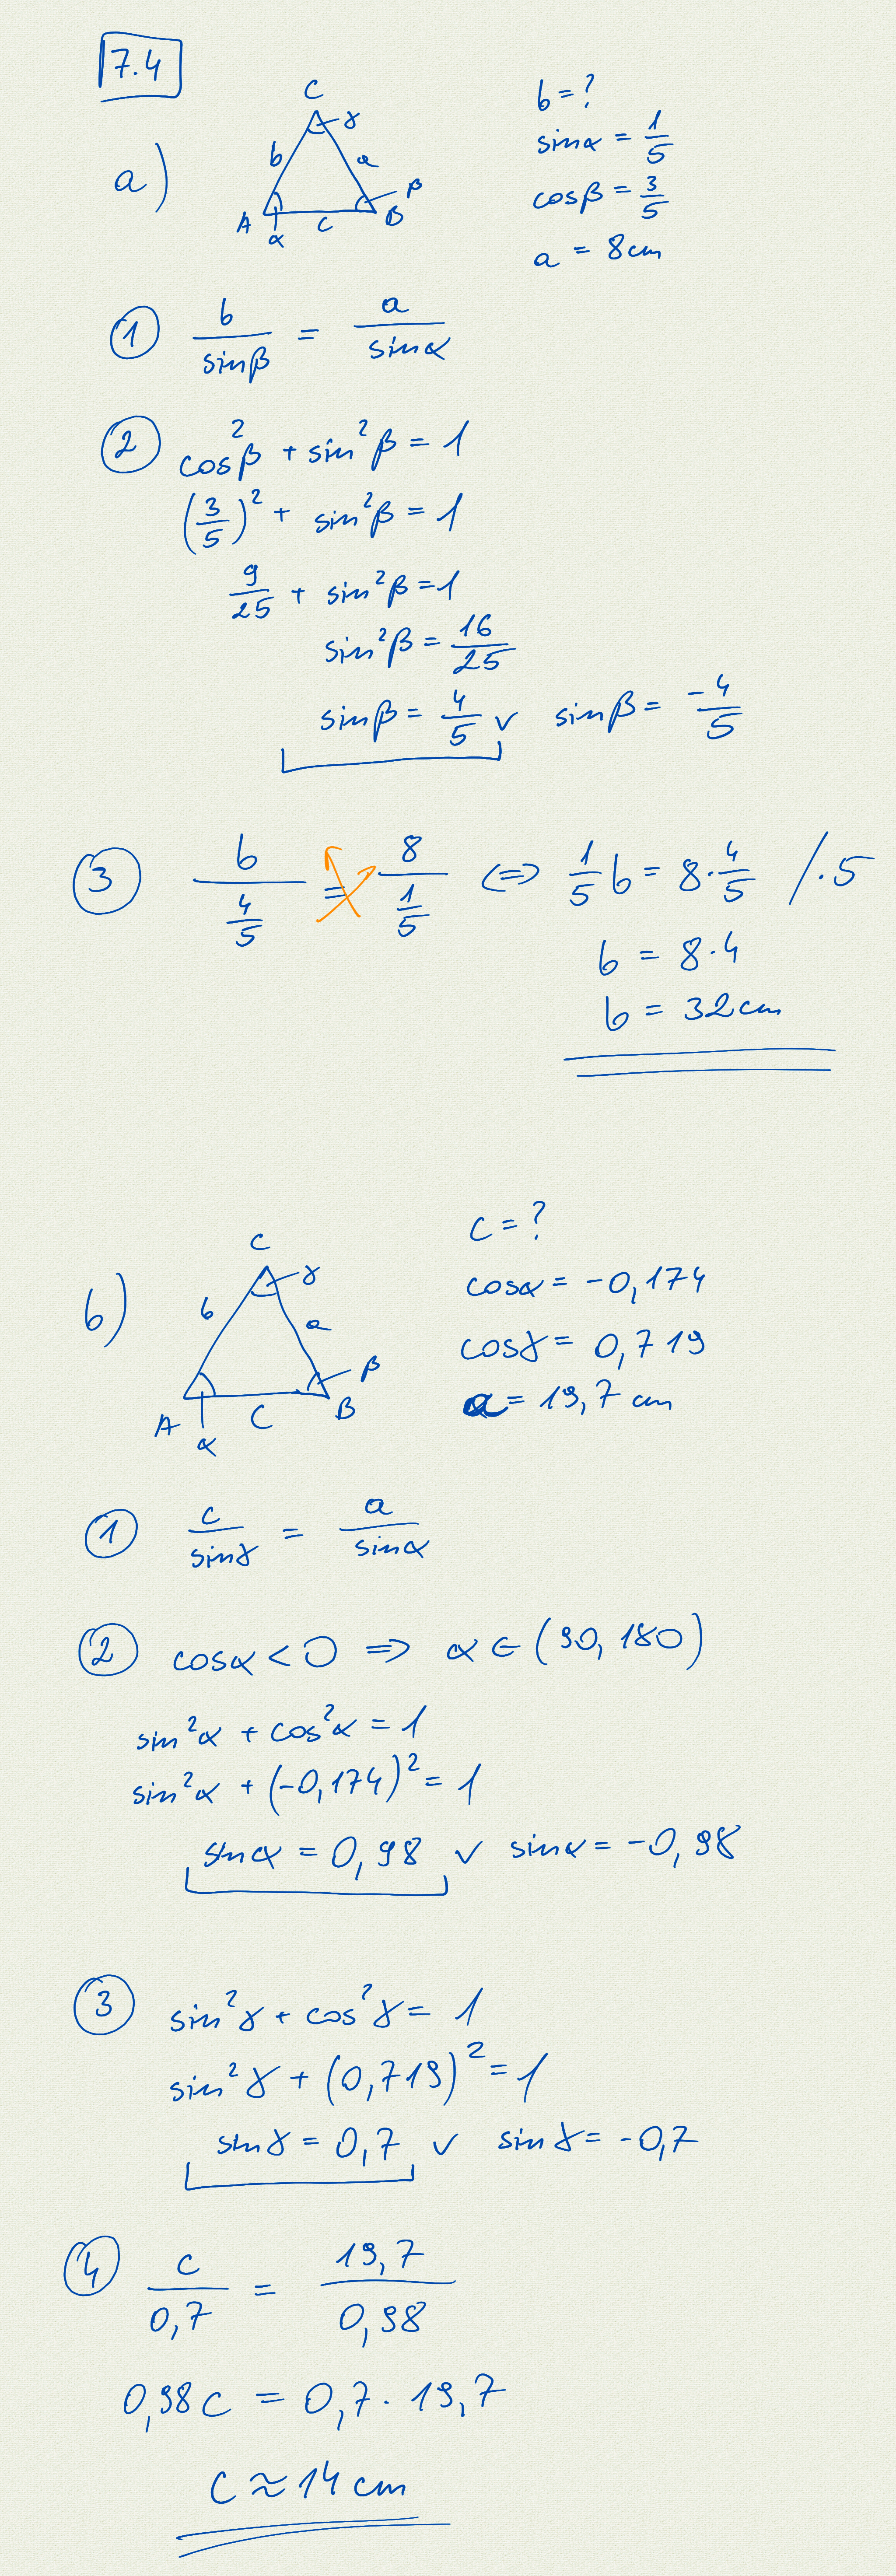 7.4
a)
C
γ
b
a
β
A
α
c
B
b = ?
sinα = 1/5
cosβ = 3/5
a = 8cm
① b/sinβ = a/sinα
② cos²β + sin²β = 1
(3/5)² + sin²β = 1
9/25 + sin²β = 1
sin²β = 16/25
sinβ = 4/5 ∨ sinβ = -4/5
③ b/(4/5) = 8/(1/5) ⇔ 1/5 b = 8·4/5 /·5
b = 8·4
b = 32cm
b)
C
γ
b
a
β
A
α
C
B
c = ?
cosα = -0,174
cosγ = 0,719
a = 19,7 cm
① c/sinγ = a/sinα
② cosα < 0 ⇒ α ∈ (90, 180)
sin²α + cos²α = 1
sin²α + (-0,174)² = 1
sinα = 0,98 ∨ sinα = -0,98
③ sin²γ + cos²γ = 1
sin²γ + (0,719)² = 1
sinγ = 0,7 ∨ sinγ = -0,7
④ c/0,7 = 19,7/0,98
0,98c = 0,7 · 19,7
c ≈ 14 cm